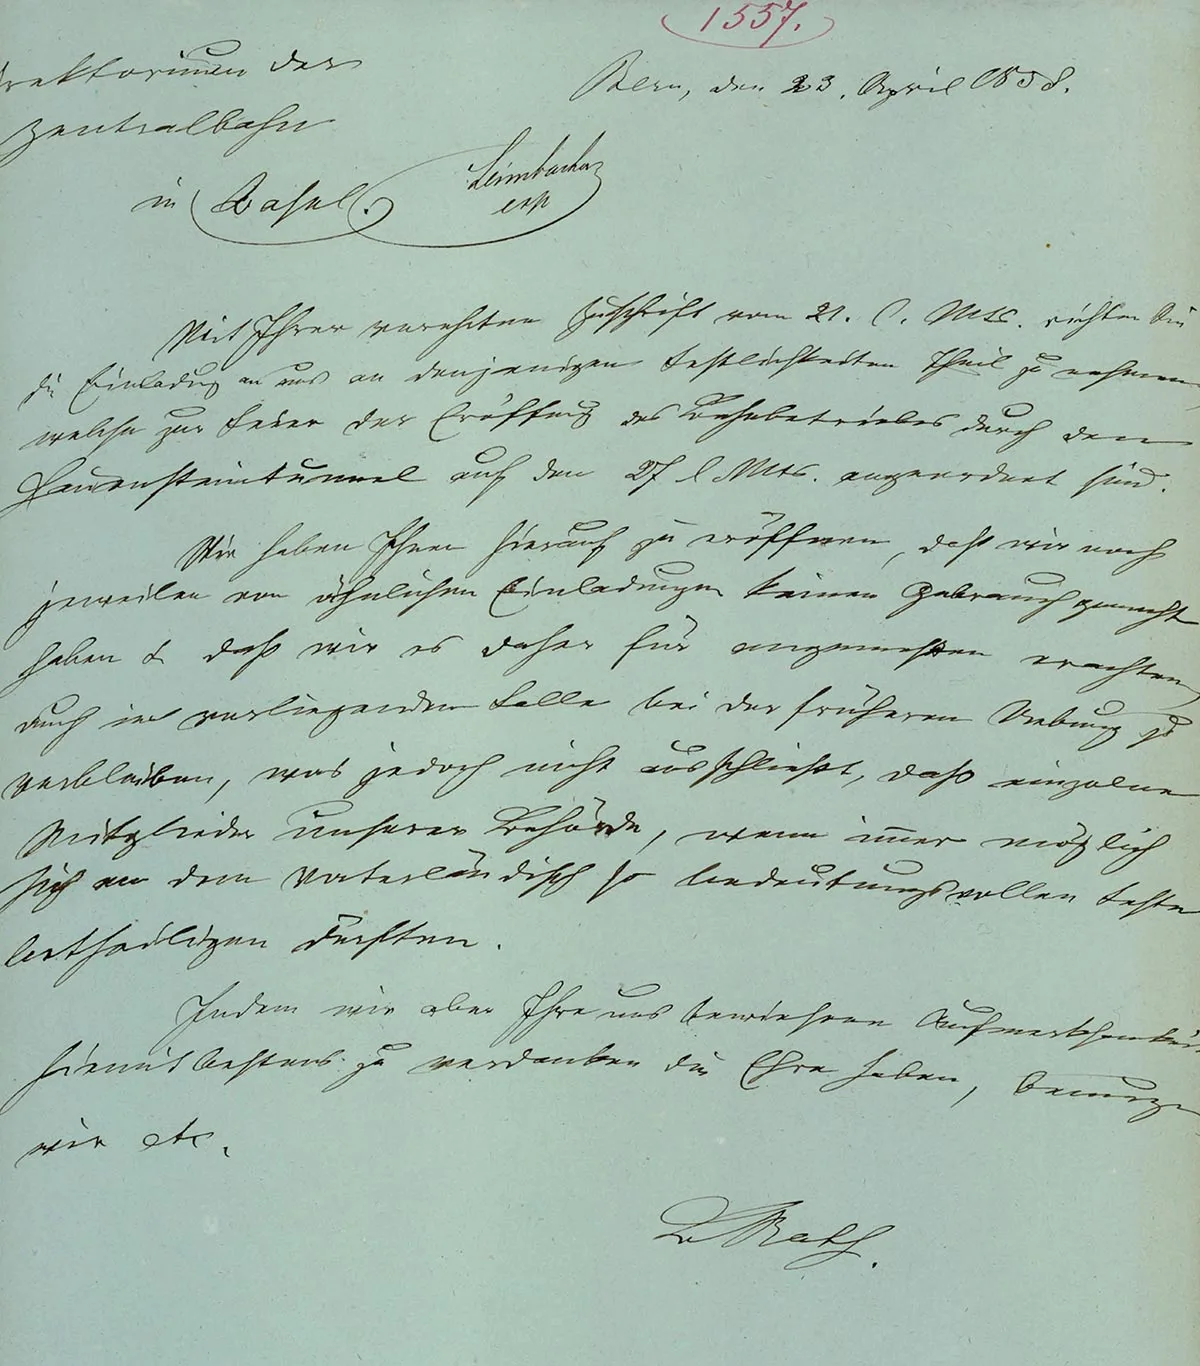 1557.
Bern, den 23. April 1858.
rektorium der
Zentralbahn
in Basel.
Leimbacher
exp
Mit Ihrer verehrten Zuschrift vom 21. l. Mts. richten Sie
die Einladung an uns an denjenigen Festlichkeiten Theil zu nehmen
welche zur Feier der Eröffnung des Bahnbetriebes durch den
Hauensteintunnel auf den l Mts. angeordnet sind.
Wir haben Ihnen hierauf zu eröffnen, daß wir noch
jeweilen von ähnlichen Einladungen keinen Gebrauch gemacht
haben & daß wir es daher für angemessen erachten,
auch im vorliegenden Falle bei der früheren Uebung zu
verbleiben, was jedoch nicht ausschließt, daß einzelne
Mitglieder unserer Behörde, wenn immer möglich
sich an dem vaterländisch so bedeutungsvollen Feste
betheiligen dürften.
Indem wir aber Ihre uns bewiesene Aufmerksamkei
hiemit bestens zu verdanken die Ehre haben, benuzen
wir etc.
B Rath.